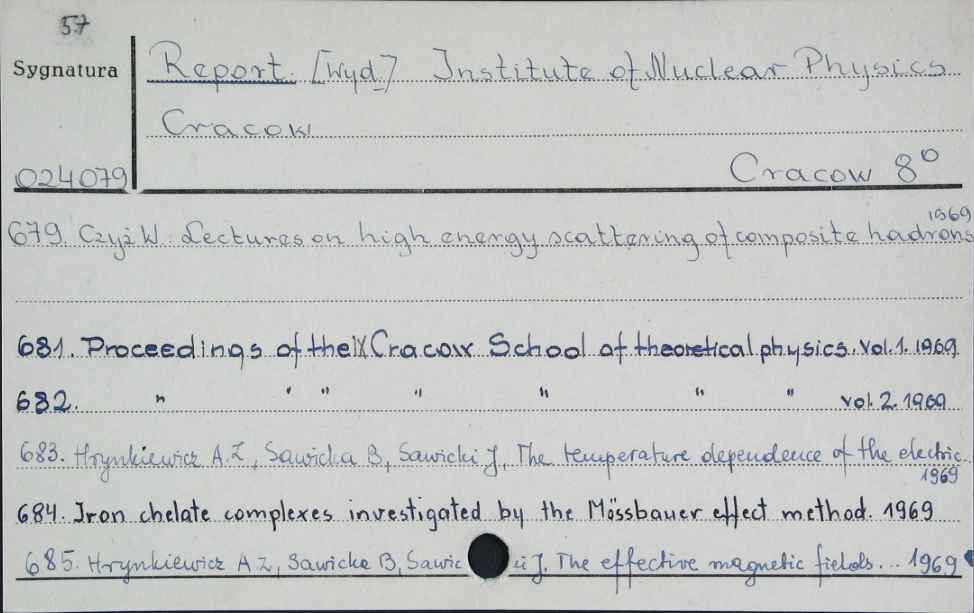 57
Sygnatura
Report. [Wyd.] Institute of Nuclear Physics
Cracow
024079
Cracow 8°
1969
679. Czyż W. Lectures on high energy scattering of composite hadrons
681. Proceedings of the IX Cracow School of theoretical physics. Vol. 1. 1969
682. " " " " " " " vol. 2. 1969
683. Hrynkiewicz A.Z., Sawicka B, Sawicki J, The temperature dependence of the electric..
1969
684. Iron chelate complexes investigated by the Mössbauer effect method. 1969
685. Hrynkiewicz A Z, Sawicka B, Sawic ki J. The effective magnetic fields... 1969